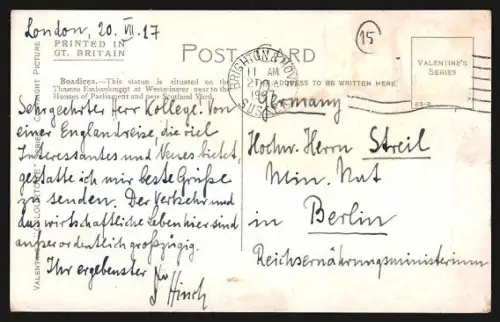 London, 20. VII. 17
15
PRINTED IN
GT. BRITAIN
POST CARD
VALENTINE'S
SERIES
Boadicea.—This statue is situated on the
Thames Embankment at Westminster near to the
Houses of Parliament and new Scotland Yard.
BRIGHTON & HOVE
11 AM
SUSSEX
ADDRESS TO BE WRITTEN HERE
Sehrgeehrter Herr Kollege. Von
einer Englandreise, die viel
Interessantes und Neues bietet,
gestatte ich mir beste Grüße
zu senden. Der Verkehr und
das wirtschaftliche Leben hier sind
außerordentlich großzügig.
Ihr ergebenster
Hinch
Germany
Hochw. Herrn Streil
Min. Rat
in Berlin
Reichsernährungsministerium
VALENTINE'S SERIES COPYRIGHT PICTURE